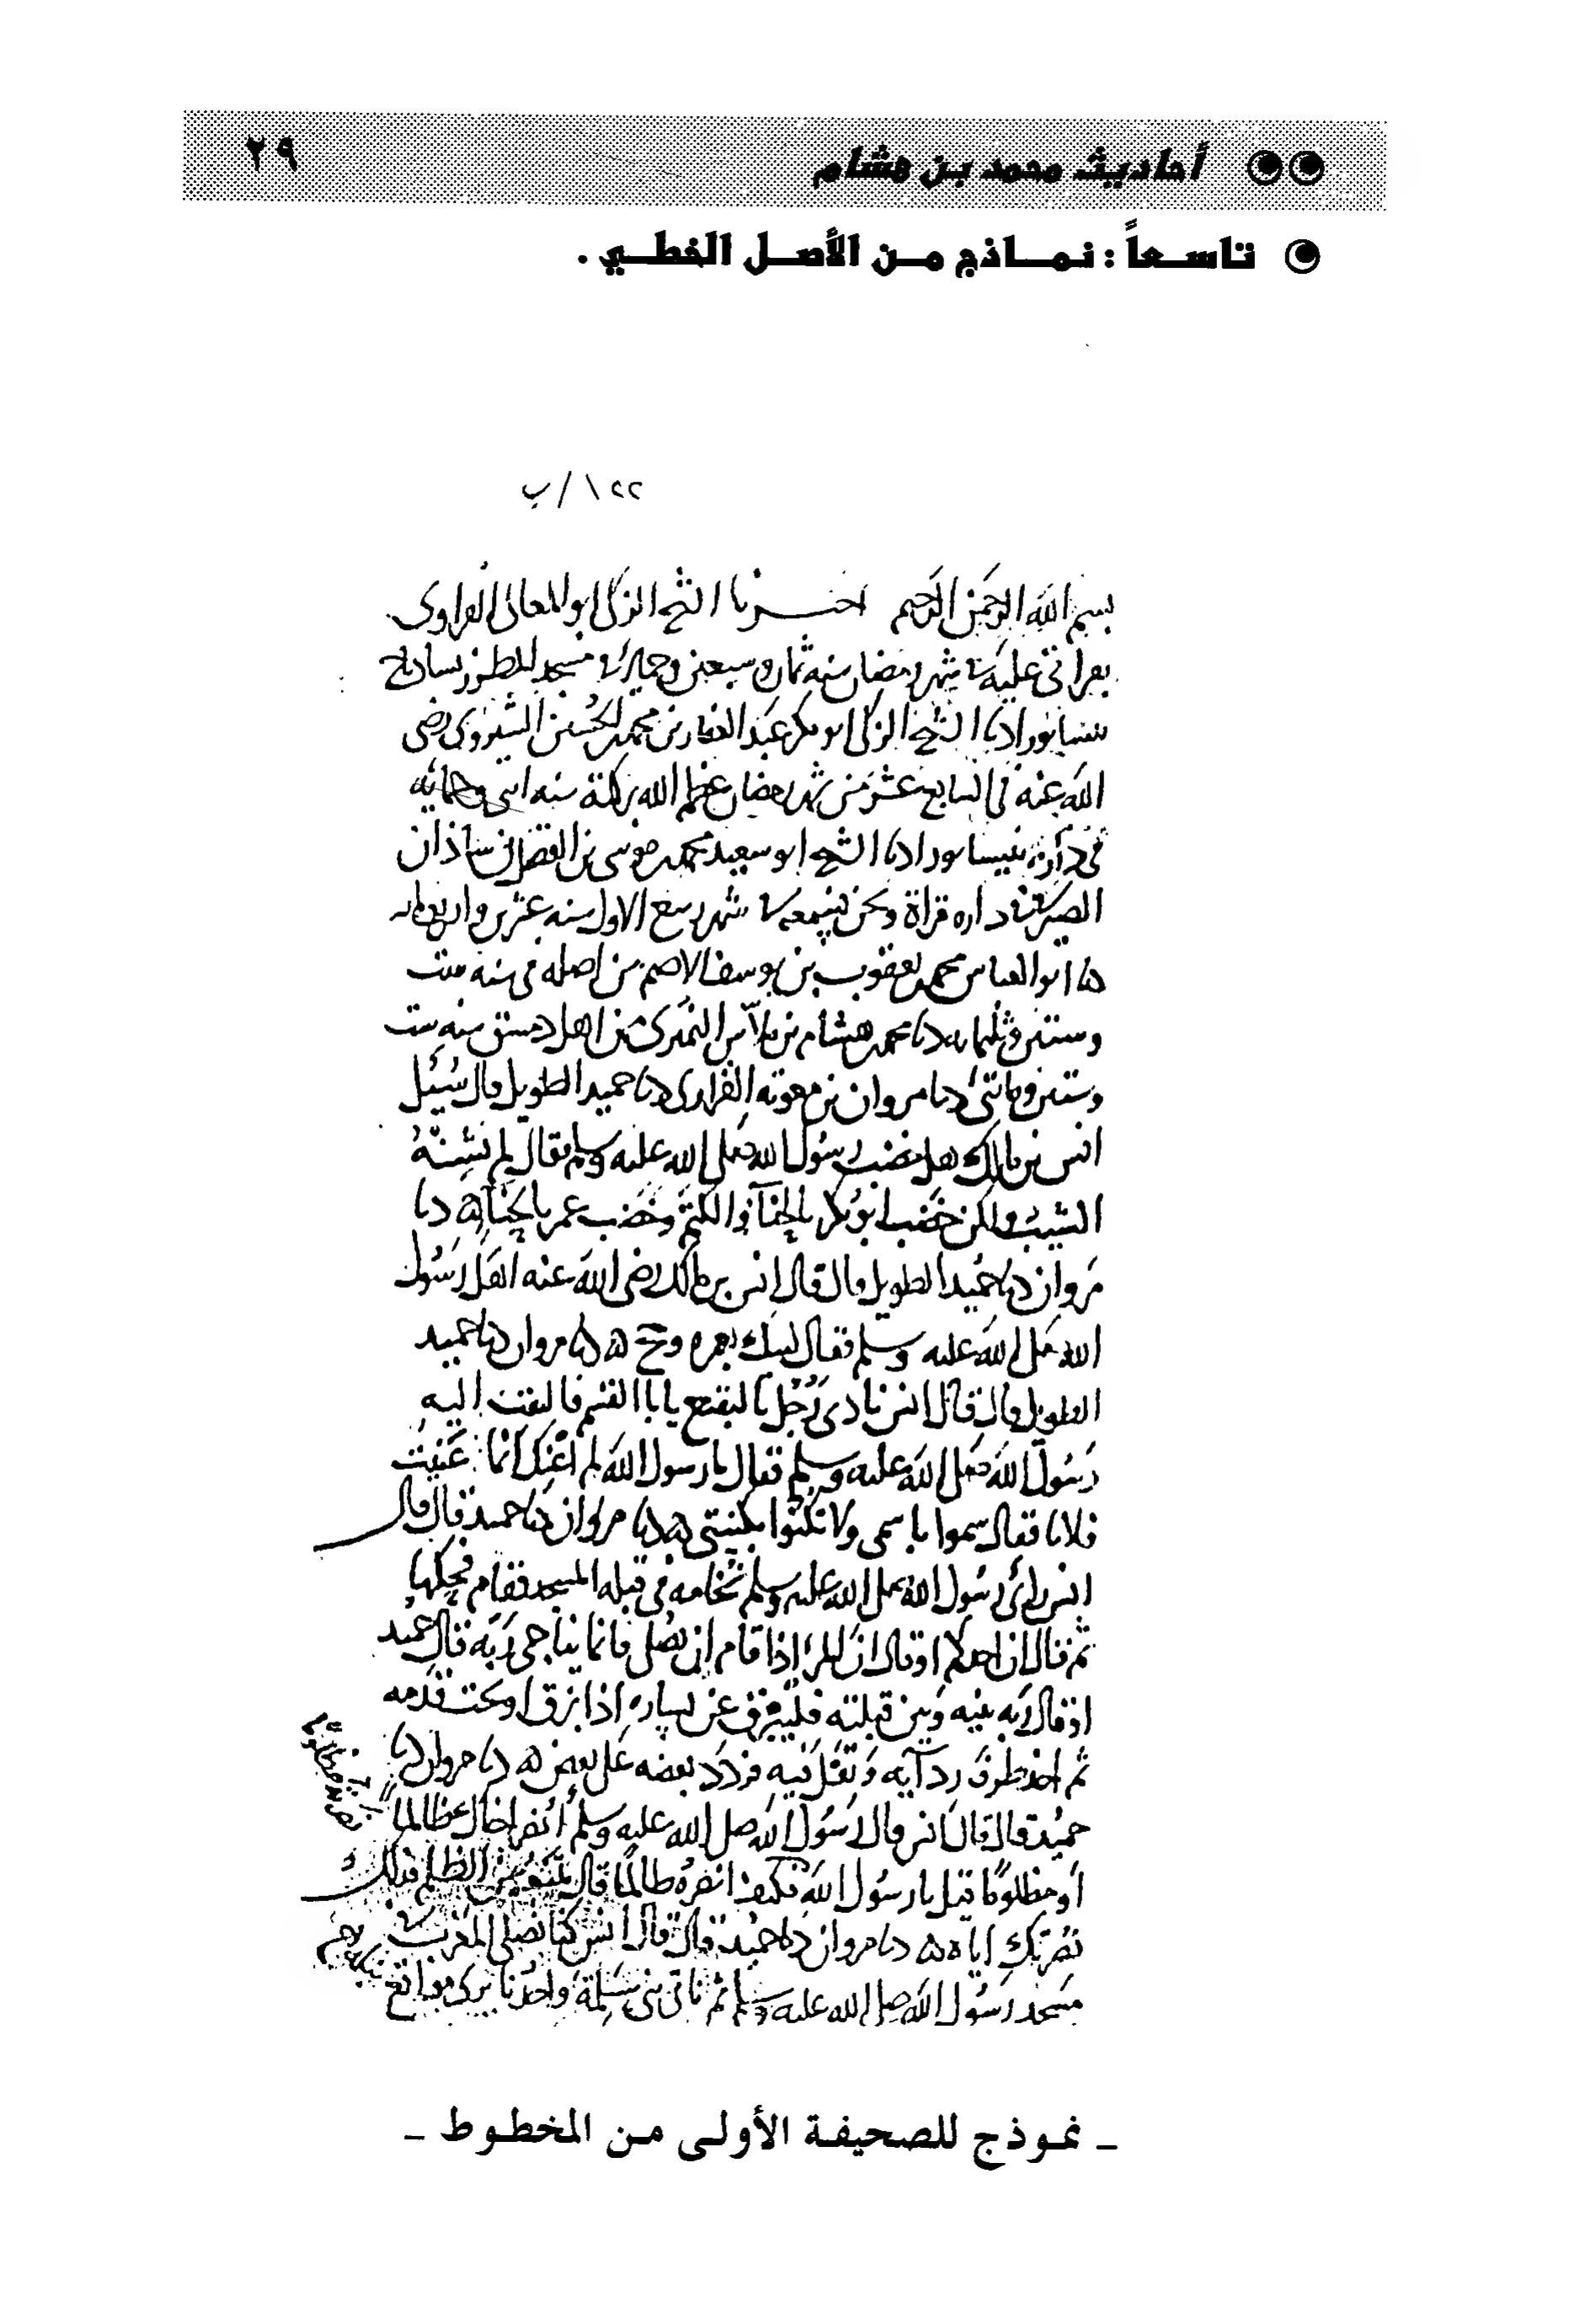 أحاديث محمد بن هشام ٢٩
تاسعاً : نماذج من الأصل الخطي .
١٢٢/ب
بسم الله الرحمن الرحيم اخبرنا الشيخ الزكي ابو المعالي الفراوي
بقراتي عليه في شهر رمضان سنه ثمان وسبعين وخمسمائه مسجد المطرز
بنيسابور انا الشيخ الزكي ابو بكر عبد الغفار بن محمد بن الحسين الشيروي رضي
الله عنه في السابع عشر من شهر رمضان عظم الله بركته سنه اثنى وخمسمائه
في داره بنيسابور انا الشيخ ابو سعيد محمد بن موسى بن الفضل بن شاذان
الصيرفي في داره قراة ونحن نسمع في شهر ربيع الاول سنه عشرين واربعمايه
نا ابو العباس محمد بن يعقوب بن يوسف الاصم من اصله في سنه ست
وستين وثلثمايه نا محمد بن هشام بن ملاس النميري من اهل دمشق سنه ست
وستين ومائتي نا مروان بن معويه الفزاري نا حميد الطويل قال سئل
انس بن مالك هل خضب رسول الله صلى الله عليه وسلم فقال لم يشنه
الشيب ولكن خضب ابو بكر بالحناء والكتم وخضب عمر بالحناء ه نا
مروان نا حميد الطويل قال قال انس بن مالك رضي الله عنه اهل رسول
الله صلى الله عليه وسلم فقال لبيك بعمره وحج ه نا مروان نا حميد
الطويل قال قال انس نادى رجل بالبقيع يا با القسم فالتفت اليه
رسول الله صلى الله عليه وسلم فقال يا رسول الله لم اعنك انما عنيت
فلانا فقال سموا باسمي ولا تكنوا بكنيتي ه نا مروان نا حميد قال قال
انس راى رسول الله صلى الله عليه وسلم نخامه في قبله المسجد فقام فحكها
ثم قال ان احدكم او قال ان المرء اذا قام ان يصلي فانما يناجي ربه قال حميد
او قال ربه بينه وبين قبلته فليبزق عن يساره اذا بزق او تحت قدمه
ثم اخذ طرف ردآيه وتفل فيه فردد بعضه على بعض ه نا مروان نا
حميد قال قال انس قال رسول الله صلى الله عليه وسلم أنصر اخاك ظالما
او مظلوما قيل يا رسول الله فكيف انصره ظالما قال تمنعه من الظلم فذلك
نصرتك اياه ه نا مروان نا حميد قال قال انس كنا نصلي المغرب في
مسجد رسول الله صلى الله عليه وسلم ثم ناتي بني سلمة واحدنا يرى مواقع
ـ نموذج للصحيفة الأولى من المخطوط ـ